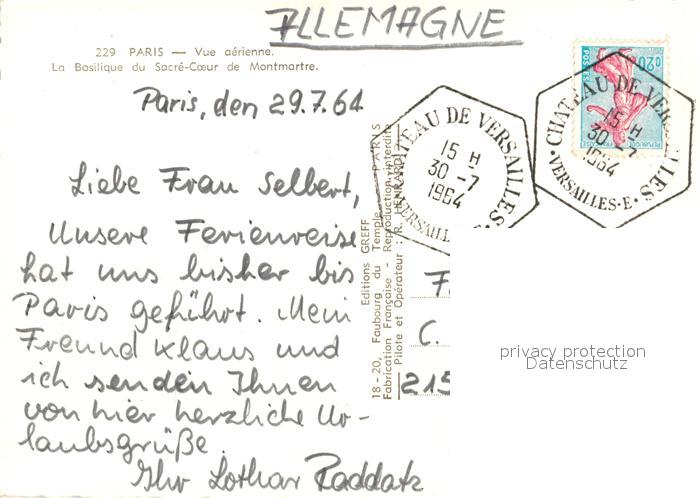 ALLEMAGNE
229 PARIS — Vue aérienne.
La Basilique du Sacré-Cœur de Montmartre.
Paris, den 29.7.64
Liebe Frau Selbert,
Unsere Ferienreise
hat uns bisher bis
Paris geführt. Mein
Freund Klaus und
ich senden Ihnen
von hier herzliche Ur-
laubsgrüße.
Ihr Lothar Raddatz
Editions GREFF
18-20, Faubourg du Temple - PARIS
Fabrication Française - Reproduction interdite
Pilote et Opérateur : R. HENRARD
CHATEAU DE VERSAILLES
15 H
30 -7
1964
VERSAILLES
CHATEAU DE VERSAILLES
15 H
30 -7
1964
VERSAILLES·E·
POSTES
0,20
REPUBLIQUE FRANÇAISE
F
C.
215
privacy protection
Datenschutz